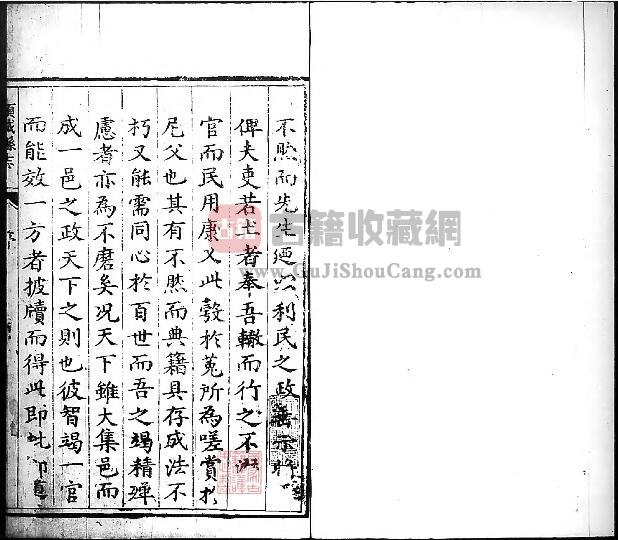 不然而先生迺以利民之政
俾夫吏若士者奉吾轍而行之不
官而民用康乂此彀於菟所為嗟賞
尼父也其有不然而典籍具存成法不
朽又能需同心於百世而吾之竭精殫
慮者亦為不磨矣况天下雖大集邑而
成一邑之政天下之則也彼智竭一官
而能效一方者披牘而得此即
項城縣志
古籍收藏網
www.GuJiShouCang.com